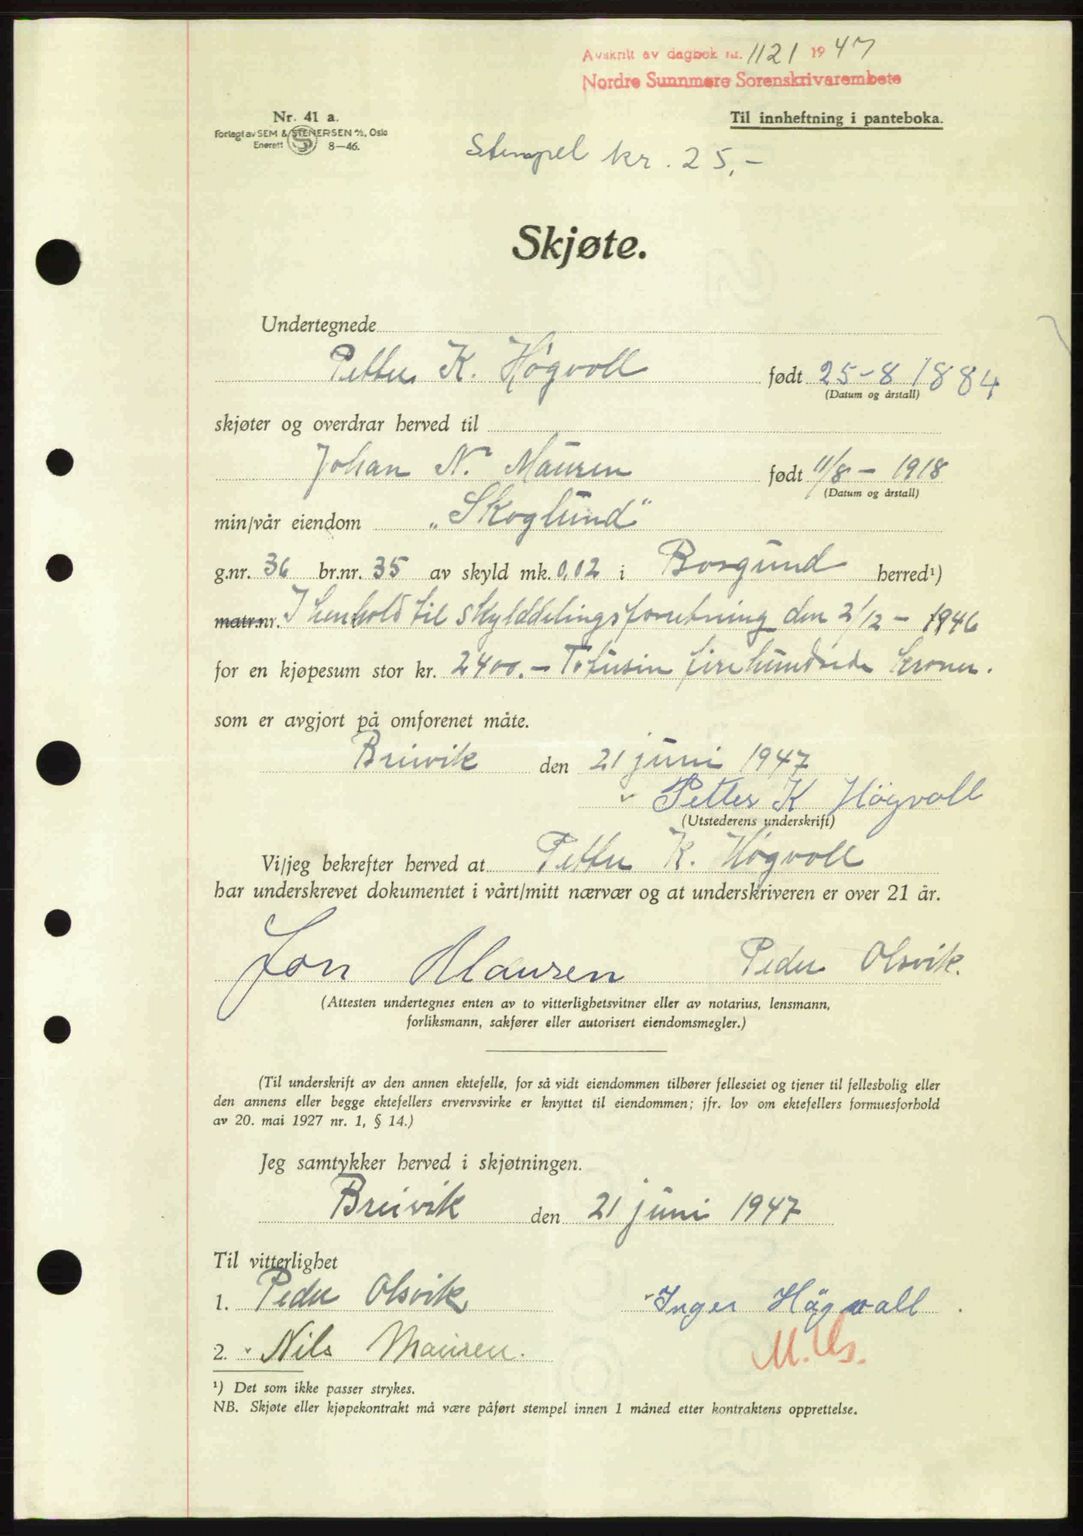 Avskrift av dagbok nr. 1121 1947
Nordre Sunnmøre Sorenskrivarembete
Nr. 41 a.
Til innheftning i panteboka.
Forlagt av SEM & STENERSEN A/S, Oslo
Enerett S 8—46.
Stempel kr. 25,-
Skjøte.
Undertegnede
Petter K. Høgvoll født 25-8 1884
(Datum og årstall)
skjøter og overdrar herved til
Johan N. Mauren født 11/8 - 1918
(Datum og årstall)
min/vår eiendom „Skoglund"
g.nr. 36 br.nr. 35 av skyld mk. 0,02 i Borgund herred¹)
matr.nr. I henhold til skylddelingsforretning den 2/12 - 1946
for en kjøpesum stor kr. 2400.- Totusin firehundrede kroner.
som er avgjort på omforenet måte.
Breivik den 21 juni 1947
Petter K Högvoll
(Utstederens underskrift)
Vi/jeg bekrefter herved at Petter K. Høgvoll
har underskrevet dokumentet i vårt/mitt nærvær og at underskriveren er over 21 år.
Jon Mauren Peder Olsvik.
(Attesten undertegnes enten av to vitterlighetsvitner eller av notarius, lensmann,
forliksmann, sakfører eller autorisert eiendomsmegler.)
(Til underskrift av den annen ektefelle, for så vidt eiendommen tilhører felleseiet og tjener til fellesbolig eller
den annens eller begge ektefellers ervervsvirke er knyttet til eiendommen; jfr. lov om ektefellers formuesforhold
av 20. mai 1927 nr. 1, § 14.)
Jeg samtykker herved i skjøtningen.
Breivik den 21 juni 1947
Til vitterlighet
1. Peder Olsvik Inger Högvall
2. Nils Mauren.
¹) Det som ikke passer strykes.
NB. Skjøte eller kjøpekontrakt må være påført stempel innen 1 måned etter kontraktens opprettelse.